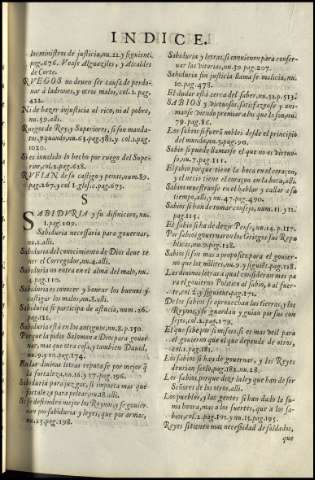 INDICE.
los ministros de justicia, nu.22. y siguient.
pag.676. Vease Alguaziles, y Alcaldes
de Corte.
RVEGOS no deuen ser causa de perdo-
nar a ladrones, y otros malos, col.2. pag.
422.
Ni de hazer injusticia al rico, ni al pobre,
nu.59. alli.
Ruegos de Reyes y Superiores, si son manda-
tos, y quando, nu.
Si es anulado lo hecho por ruego del Supe-
rior, nu. pag.628.
RVFIAN de su castigo y penas, num.89.
pag.267. y col.1. glos.c. pag.625.
S
SABIDVRIA y su difinicion, nu.
1. pag.109.
Sabiduria necessaria para gouernar,
nu.2. alli.
Sabiduria del conocimiento de Dios deue te-
ner el Corregidor, nu.4. alli.
Sabiduria no entra en el alma del malo, nu.
4. pag.110.
Sabiduria es conocer y honrar los buenos y
castigar los malos, nu.8. alli.
Sabiduria si participa de astucia, num.26.
pag.181.
Sabiduria està en los antiguos, nu.8. p.150.
Porque la pidio Salomon a Dios para gouer-
nar, mas que otra cosa, y tambien Dauid,
nu.9. y 10. pag.174.
Pintar diuinas letras reputa se por mejor q̃
la fortaleza, nu.16. y 17. pag.196.
Sabiduria para juzgar, si importa mas que
fortaleza para pelear, nu.18. alli.
Si se defienden mejor los Reynos y se gouier-
nan por sabiduria y leyes, que por armas,
nu.23. pag.198.
Sabiduria y letras, si conuienen para conser-
uar las vitorias, nu.50. pag.207.
Sabiduria sin justicia llama se malicia, nu.
16. pag.478.
El dudar està cerca del saber, nu.12. p.513.
SABIOS y virtuosos, satisfaze se y ani-
man se viendo premiar a los que lo son, nu.
79. pag.86.
Los Sabios si fueron nobles desde el principio
del mundo, nu.3. pag.90.
Sabio si puede llamarse el que no es virtuo-
so, nu.7. pag.111.
El sabio porque tiene la boca en el coraçon,
y el necio tiene en la boca el coraçon, alli.
Sabios muestranse en el hablar y callar a su
tiempo, alli, y nu.47. pag.490.
Sabio si ha de tomar consejo, num.11. y 12.
pag.113.
El sabio si ha de dezir Pense, nu.14. p.117.
Por sabios gouernaron los Griegos sus Repu-
blicas, nu.2. pag.118.
Sabios si son mas a proposito para el gouier-
no que los militares, nu.9. y siguiẽt. pag.118.
Las diuinas letras a qual consideran mas pa-
ra el gouierno Politico al sabio, ò al fuer-
te, nu.16. y siguiente, pag.171.
De los sabios se aprouechan las fuertes, y los
Reynos se guardan y guian por sus con-
sejos, nu.16. pag.179.
El que sabe por si mismo, si es mas vtil para
el gouierno que el que depende de otros,
col.1. pag.181.
Los sabios si han de gouernar, y los Reyes
deurian serlo, pag.182. nu.28.
Los sabios, porque dize la ley que han de ser
Señores de los otros, alli.
Los pueblos, y las gentes si han dado la su-
ma honra, mas a los fuertes, que a los sa-
bios, col.2. pag.191. y nu.15. pag.195.
Reyes si tienen mas necessidad de soldados,
que